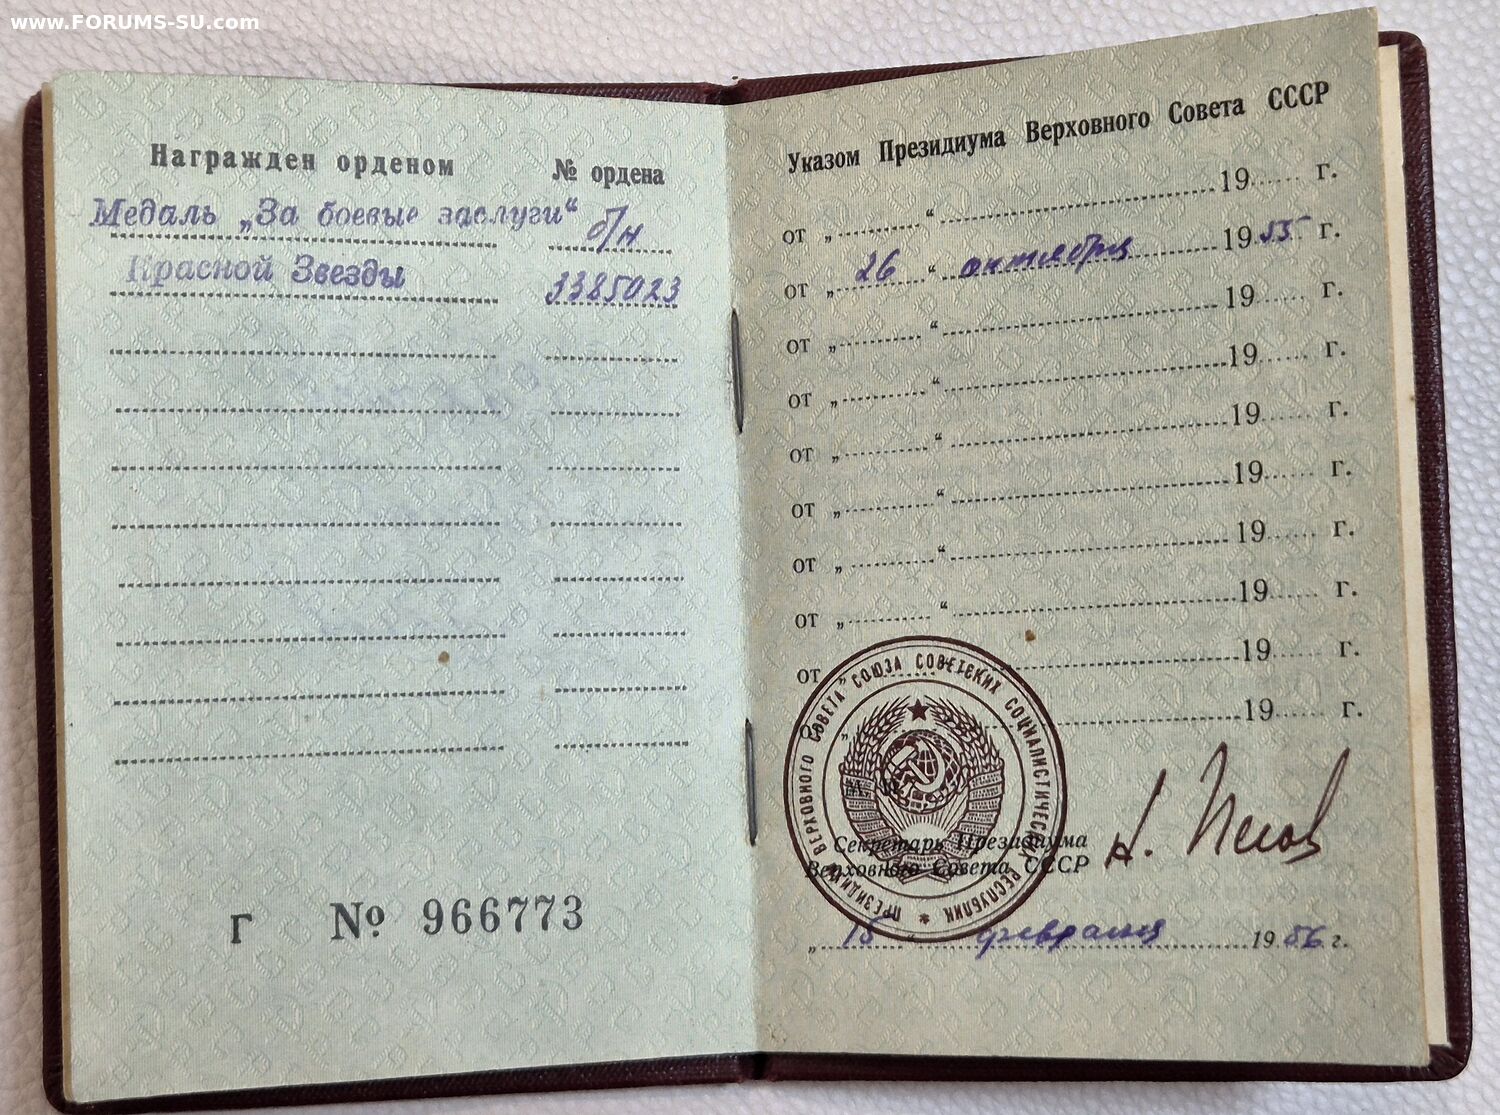 www.FORUMS-SU.com
Награжден орденом № ордена
Медаль „За боевые заслуги“ б/н
Красной Звезды 3385023
Г № 966773
Указом Президиума Верховного Совета СССР
от „ “ 19 г.
от „ 26 “ октября 1955 г.
от „ “ 19 г.
от „ “ 19 г.
от „ “ 19 г.
от „ “ 19 г.
от „ “ 19 г.
от „ “ 19 г.
от „ “ 19 г.
„ “ 19 г.
ПРЕЗИДИУМ ВЕРХОВНОГО СОВЕТА СОЮЗА СОВЕТСКИХ СОЦИАЛИСТИЧЕСКИХ РЕСПУБЛИК
Секретарь Президиума
Верховного Совета СССР
Н. Пегов
„ 15 “ февраля 1956 г.